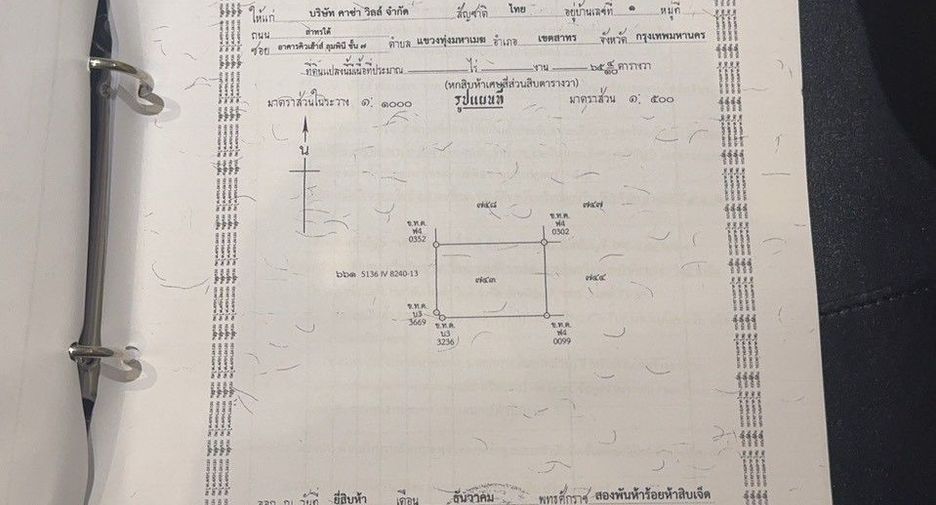 ให้แก่ บริษัท คาซ่า วิลล์ จำกัด สัญชาติ ไทย อยู่บ้านเลขที่ ๑ หมู่ที่
ถนน สาทรใต้
ซอย อาคารคิวเฮ้าส์ ลุมพินี ชั้น ๗ ตำบล แขวงทุ่งมหาเมฆ อำเภอ เขตสาทร จังหวัด กรุงเทพมหานคร
ที่ดินแปลงนี้มีเนื้อที่ประมาณ ไร่ งาน ๖๕ ๔/๑๐ ตารางวา
(หกสิบห้าเศษสี่ส่วนสิบตารางวา)
มาตราส่วนในระวาง ๑: ๑๐๐๐ รูปแผนที่ มาตราส่วน ๑: ๕๐๐
น
๗๔๘ ๗๔๗
ข.ท.ด.
ฟ4
0352
ข.ท.ด.
ฟ4
0302
๖๖๑ 5136 IV 8240-13 ๗๔๓ ๗๔๔
ข.ท.ด.
บ3
3669
ข.ท.ด.
บ3
3236
ข.ท.ด.
ฟ4
0099
ออก ณ วันที่ ยี่สิบห้า เดือน ธันวาคม พุทธศักราช สองพันห้าร้อยห้าสิบเจ็ด